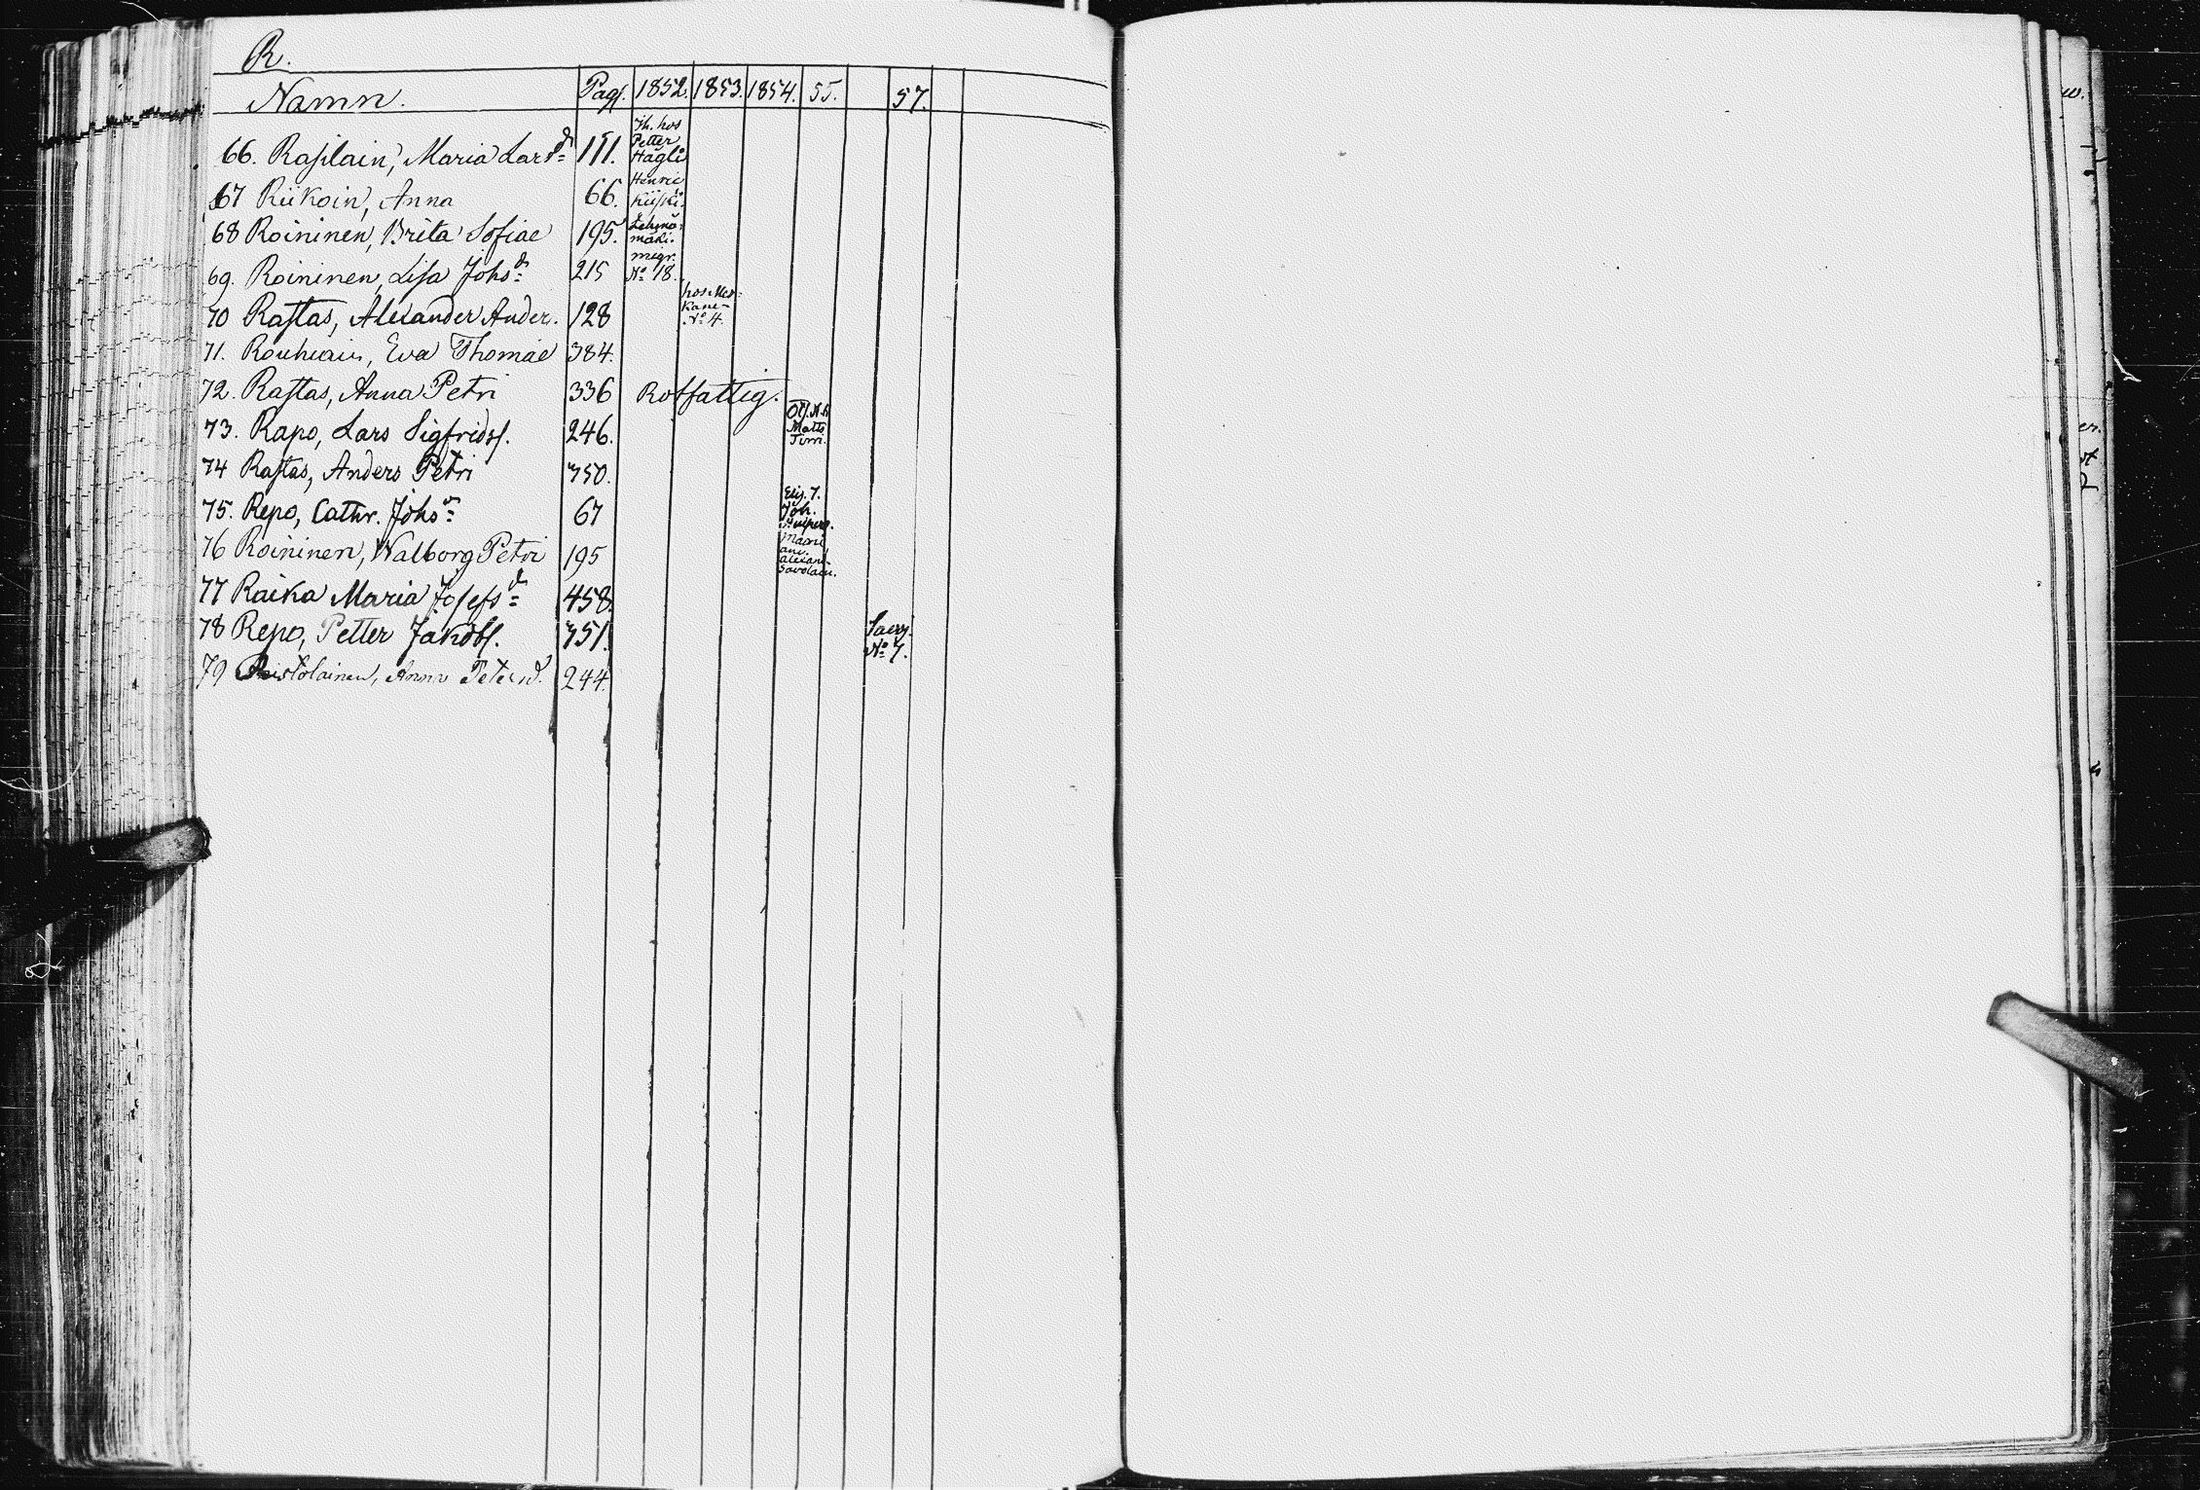 R.
Namn. Pag. 1852. 1853. 1854. 55. 57.
66. Raslain, Maria Larsdr 111. Th. hos Petter Hägli
67 Riikoin, Anna 66. Henric Kiiski.
68 Roininen, Brita Sofiae 195. Lehmä: mäki.
69. Roininen, Lisa Johsdr 215 migr. No 18.
70 Rastas, Alexander Ander. 128 hos No 4.
71. Eva Thomae 384.
72. Rastas, Anna Petri 336 Rotfattig.
73. Rapo, Lars Sigfridss. 246. Matts Tirri.
74 Rastas, Anders Petri 350.
75. Repo, Cathr. Johsdr 67 Joh.
76 Roininen, Walborg Petri 195 Savolain.
77 Raika Maria Josefsdr 458.
78 Repo, Petter Jakobs. 351. No 7.
79 Ristolainen, Anna Petersd. 244.